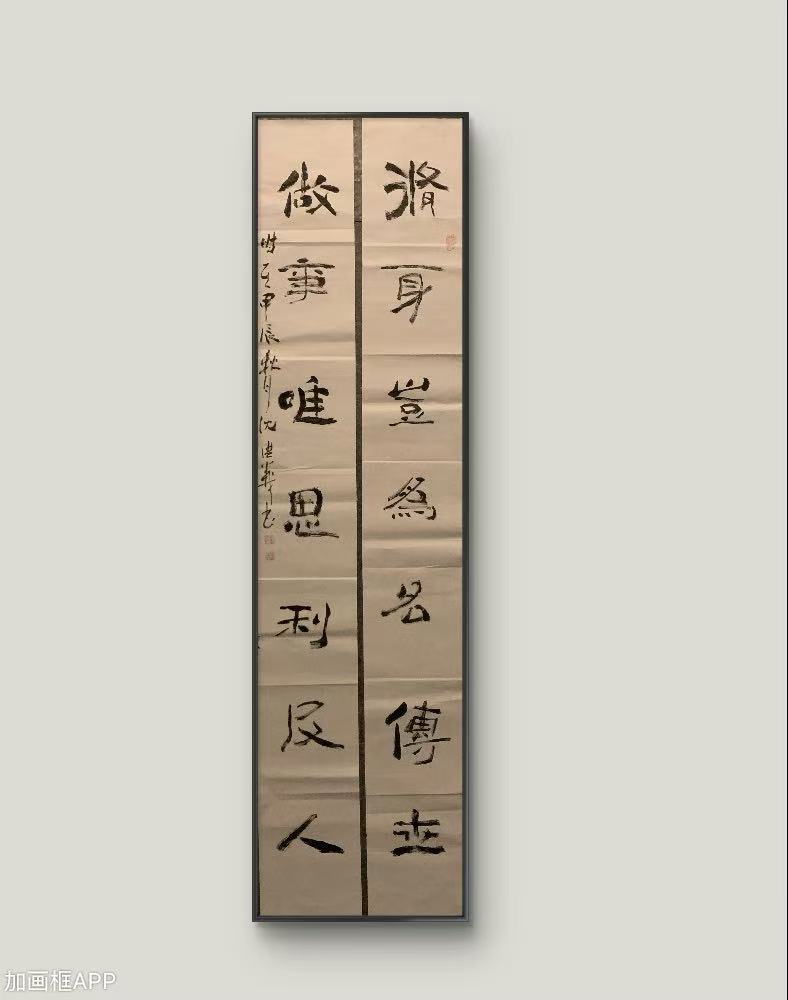 脩身豈為名傳世
做事唯思利及人
时在甲辰秋月沈书
加画框APP